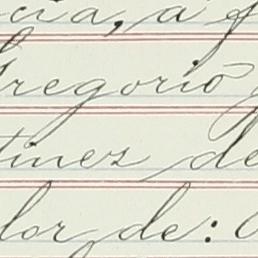 cia, a f
Gregorio
tinez de
lor de: